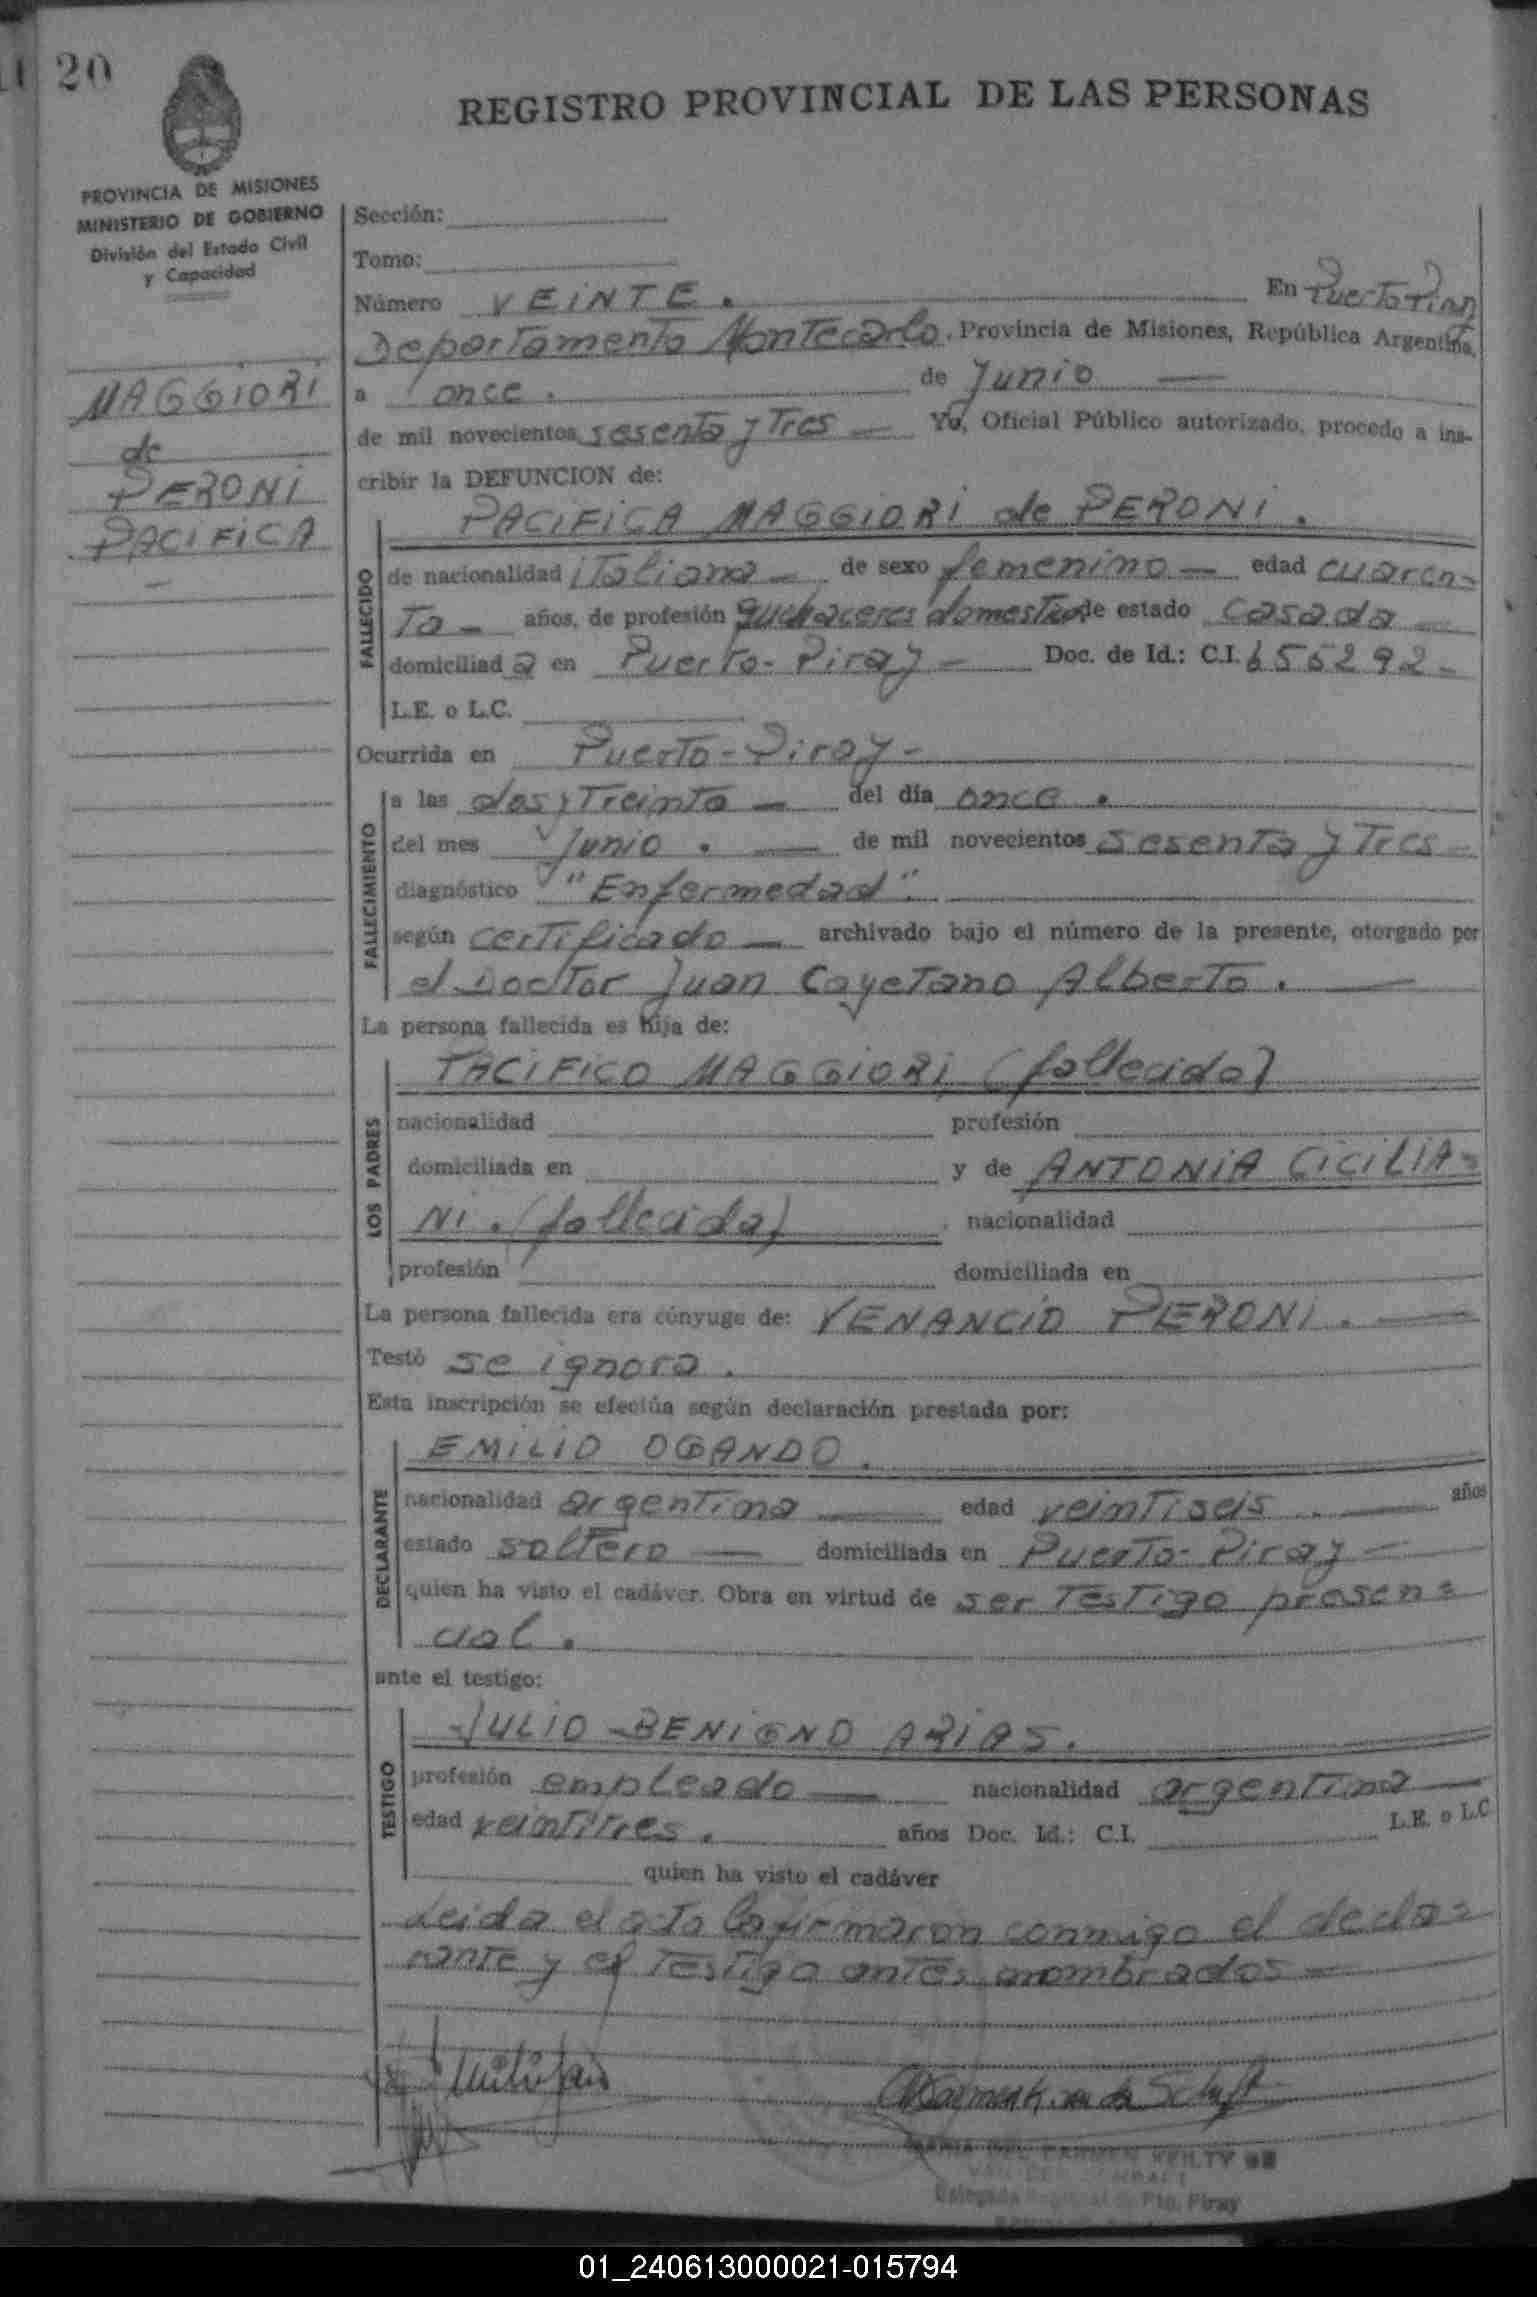 20
REGISTRO PROVINCIAL DE LAS PERSONAS
PROVINCIA DE MISIONES
MINISTERIO DE GOBIERNO
División del Estado Civil
y Capacidad
MAGGIORI
de
PERONI
PACIFICA
Sección:
Tomo:
Número VEINTE. En Puerto Piray
Departamento Montecarlo, Provincia de Misiones, República Argentina,
a once. de Junio
de mil novecientos sesenta y Tres Yo, Oficial Público autorizado, procedo a ins-
cribir la DEFUNCION de:
PACIFICA MAGGIORI de PERONI.
FALLECIDO
de nacionalidad italiana de sexo femenino edad cuaren=
Ta años, de profesión quehaceres domesticos de estado casada
domiciliad a en Puerto-Piray Doc. de Id.: C.I. 656292
L.E. o L.C.
Ocurrida en Puerto-Piray
FALLECIMIENTO
a las dos y Treinta del día once.
del mes Junio. de mil novecientos sesenta y Tres
diagnóstico "Enfermedad".
según certificado archivado bajo el número de la presente, otorgado por
el Doctor Juan Cayetano Alberto.
La persona fallecida es hija de:
LOS PADRES
PACIFICO MAGGIORI, (fallecido)
nacionalidad profesión
domiciliada en y de ANTONIA CICILIA=
NI. (fallecida) nacionalidad
profesión domiciliada en
La persona fallecida era cónyuge de: VENANCIO PERONI.
Testó se ignora.
Esta inscripción se efectúa según declaración prestada por:
DECLARANTE
EMILIO OGANDO.
nacionalidad argentina edad veintiseis. años
estado soltero domiciliada en Puerto-Piray
quien ha visto el cadáver. Obra en virtud de ser Testigo presen=
cial.
ante el testigo:
TESTIGO
JULIO BENIGNO ARIAS.
profesión empleado nacionalidad argentina
edad veintitres. años Doc. Id.: C.I. L.E. o L.C
quien ha visto el cadáver
Leida el acta la firmaron conmigo el decla=
rante y el Testigo antes nombrados
MARIA DEL CARMEN
Delegada Pto. Piray
01_240613000021-015794